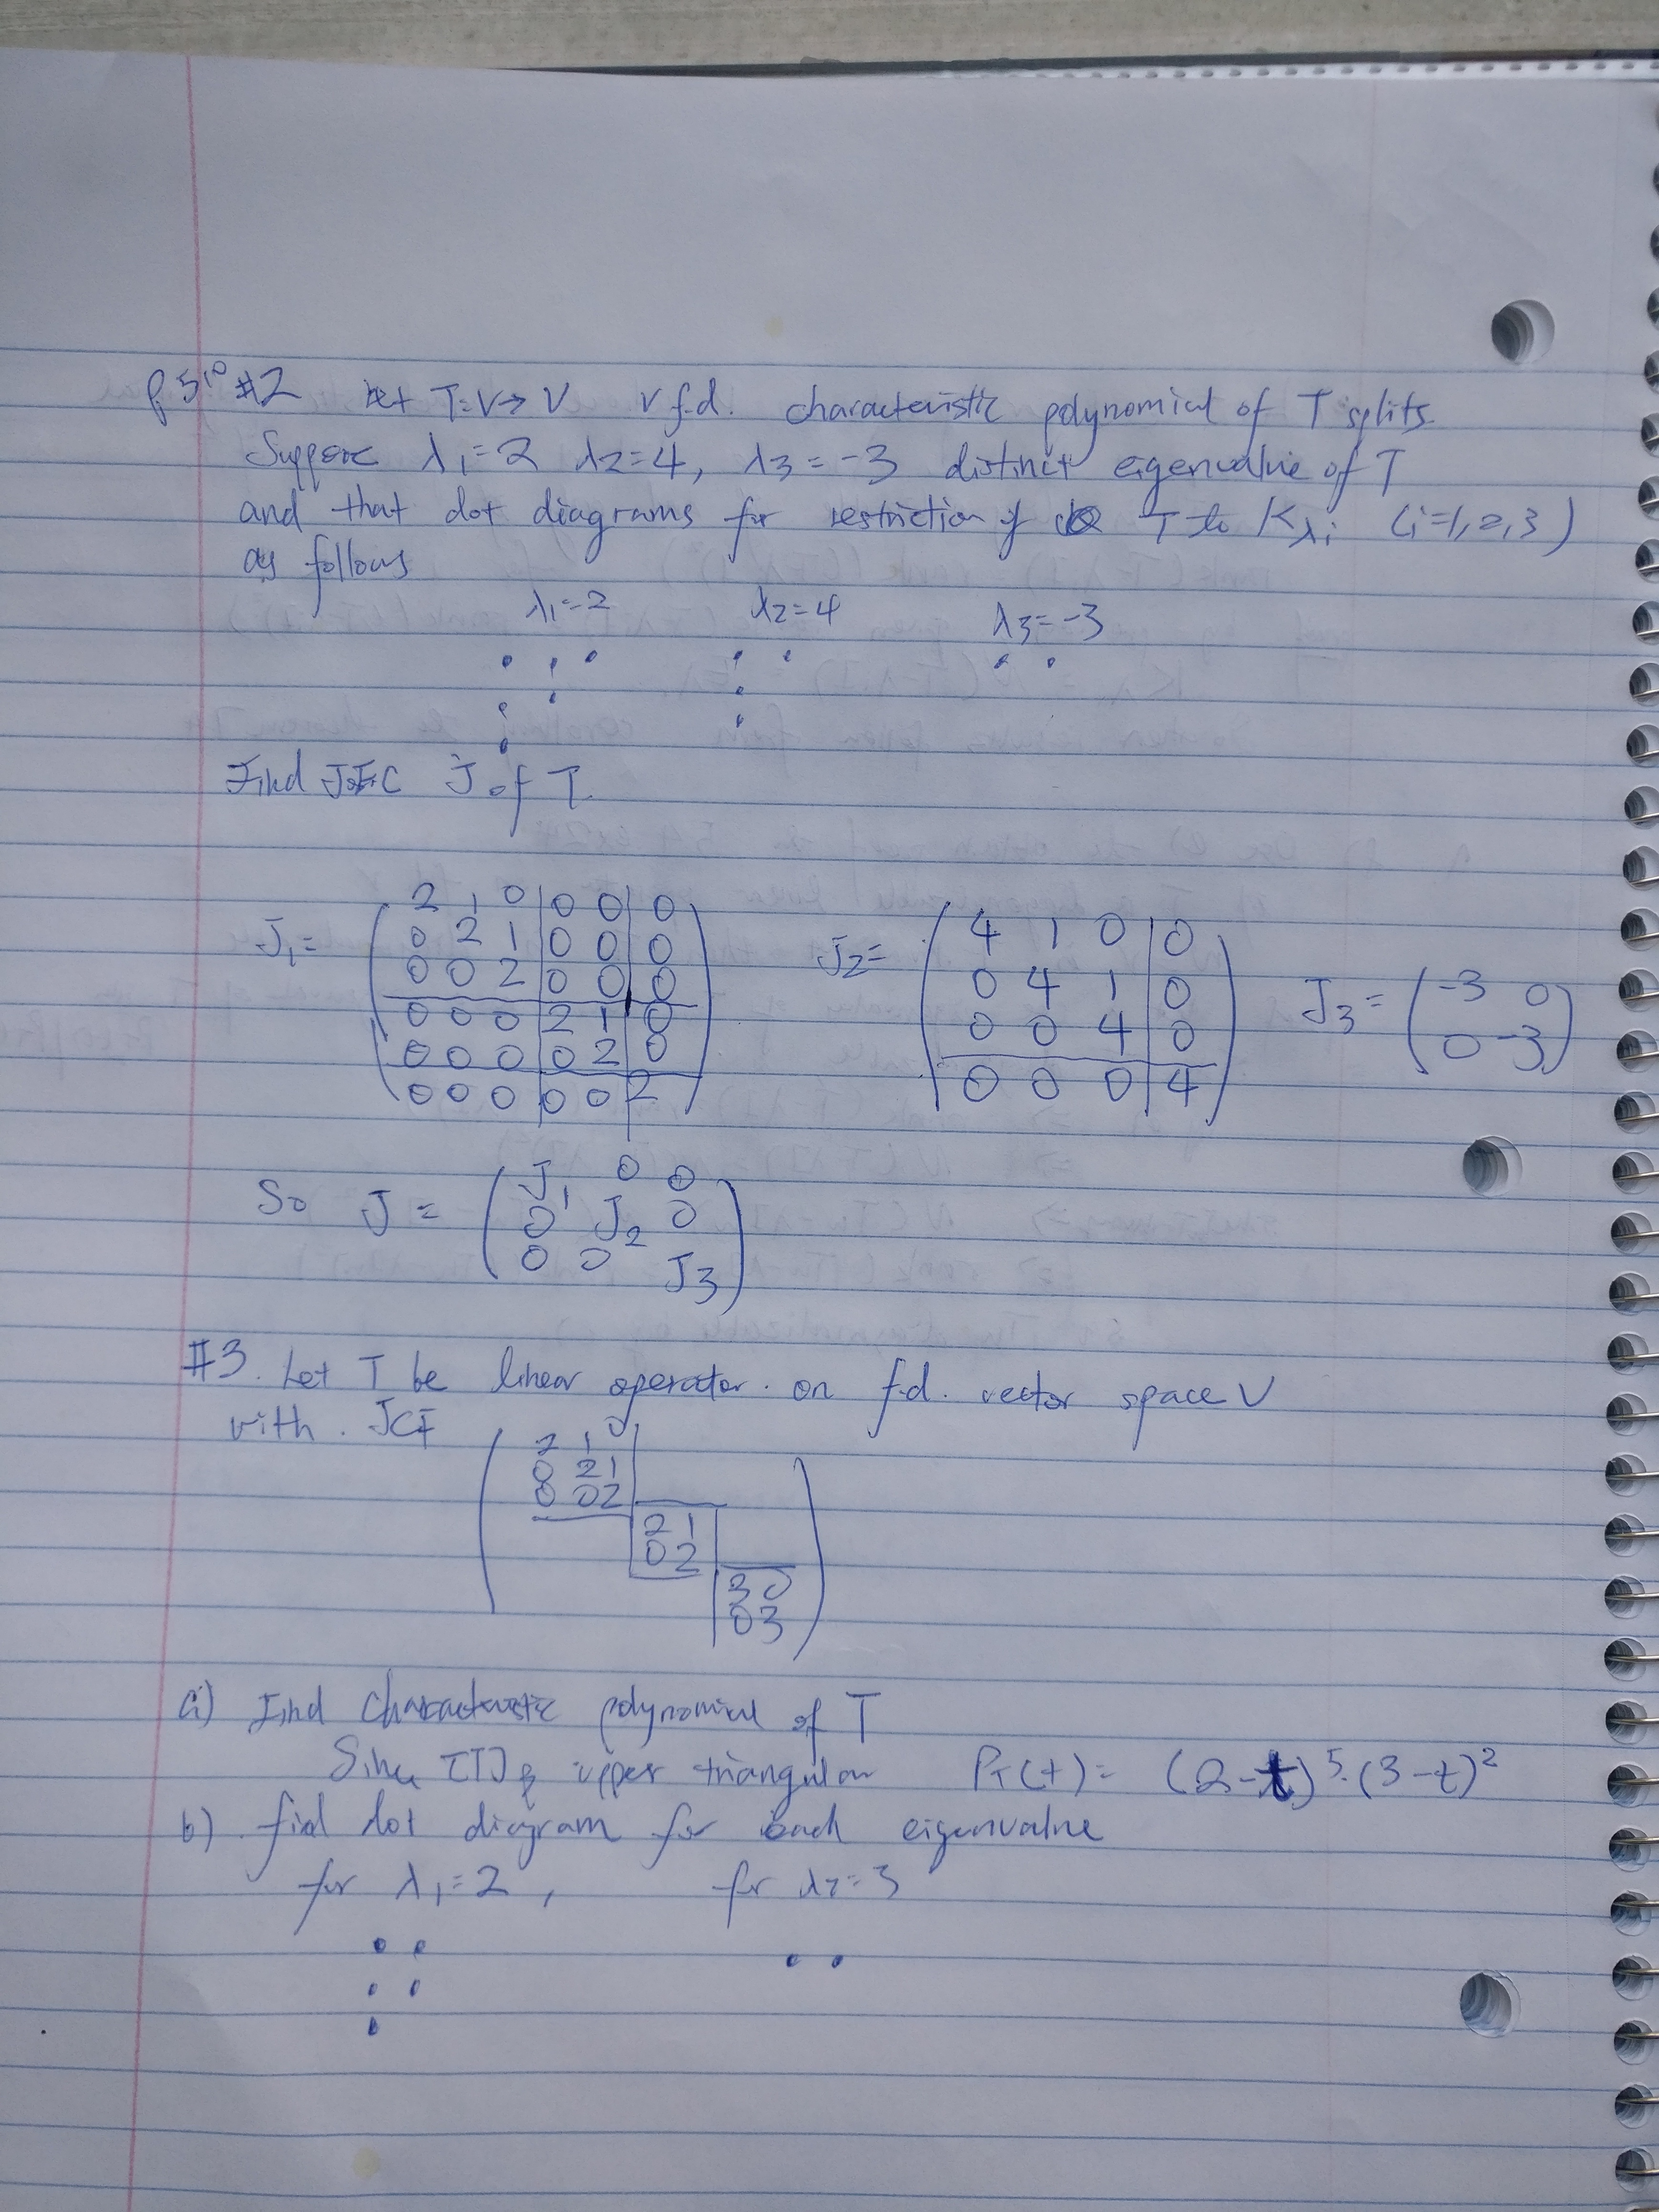 P.510 #2 Let T:V→V V f.d. characteristic polynomial of T splits.
Suppose λ1=2 λ2=4, λ3=-3 distinct eigenvalue of T
and that dot diagrams for restriction of T to Kλi (i=1,2,3)
as follows
λ1=2 λ2=4 λ3=-3
• • • • • • •
• • •
• •
Find JCF J of T.
J1= ( 2 1 0 | 0 0 | 0
0 2 1 | 0 0 | 0
0 0 2 | 0 0 | 0
0 0 0 | 2 1 | 0
0 0 0 | 0 2 | 0
0 0 0 | 0 0 | 2 )
J2= ( 4 1 0 | 0
0 4 1 | 0
0 0 4 | 0
0 0 0 | 4 )
J3= ( -3 0
0 -3 )
So J = ( J1 0 0
0 J2 0
0 0 J3 )
#3. Let T be linear operator on f.d. vector space V
with JCF
( 2 1 0
0 2 1
0 0 2
2 1
0 2
3 0
0 3 )
a) Find characteristic polynomial of T
Since [T]β upper triangular PT(t) = (2-t)^5·(3-t)^2
b) find dot diagram for each eigenvalue
for λ1=2, for λ2=3
• • • •
• •
•